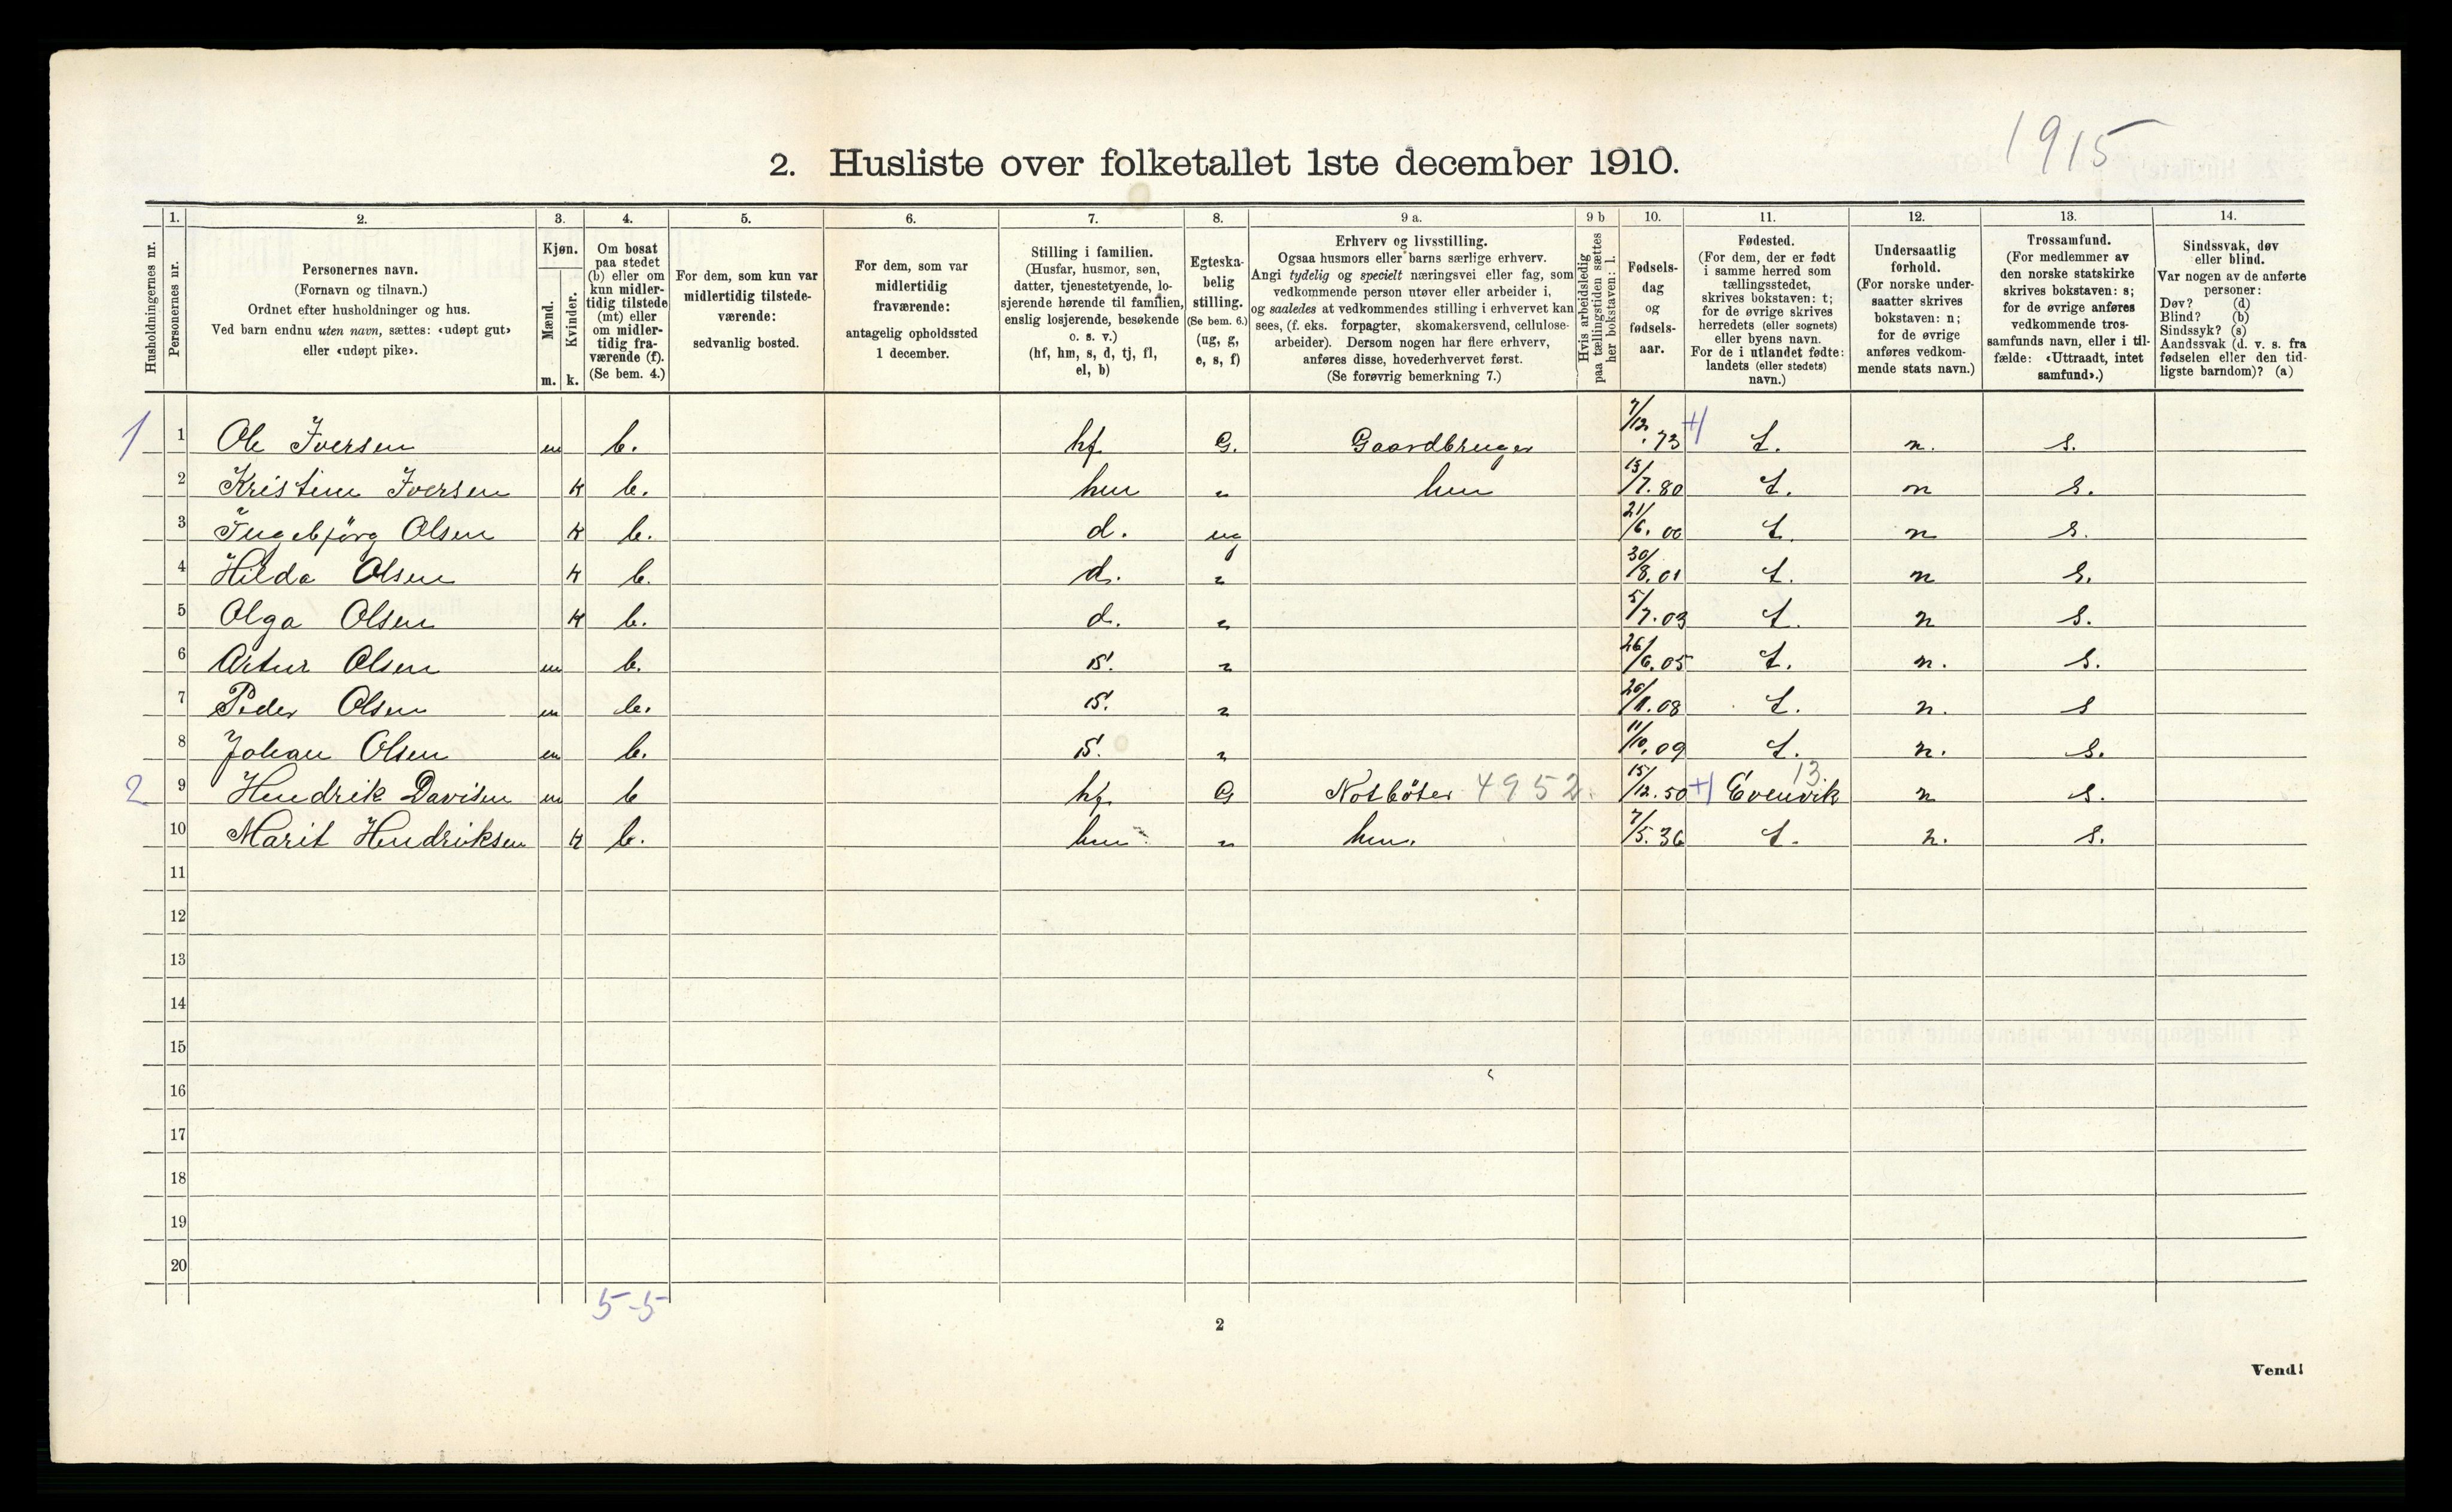 1915
2. Husliste over folketallet 1ste december 1910.
Husholdningernes nr.
1.
Personernes nr.
2.
Personernes navn.
(Fornavn og tilnavn.)
Ordnet efter husholdninger og hus.
Ved barn endnu uten navn, sættes: «udøpt gut»
eller «udøpt pike».
3.
Kjøn.
Mænd.
Kvinder.
m. k.
4.
Om bosat
paa stedet
(b) eller om
kun midler-
tidig tilstede
(mt) eller
om midler-
tidig fra-
værende (f).
(Se bem. 4.)
5.
For dem, som kun var
midlertidig tilstede-
værende:
sedvanlig bosted.
6.
For dem, som var
midlertidig
fraværende:
antagelig opholdssted
1 december.
7.
Stilling i familien.
(Husfar, husmor, søn,
datter, tjenestetyende, lo-
sjerende hørende til familien,
enslig losjerende, besøkende
o. s. v.)
(hf, hm, s, d, tj, fl,
el, b)
8.
Egteska-
belig
stilling.
(Se bem. 6.)
(ug, g,
e, s, f)
9 a.
Erhverv og livsstilling.
Ogsaa husmors eller barns særlige erhverv.
Angi tydelig og specielt næringsvei eller fag, som
vedkommende person utøver eller arbeider i,
og saaledes at vedkommendes stilling i erhvervet kan
sees, (f. eks. forpagter, skomakersvend, cellulose-
arbeider). Dersom nogen har flere erhverv,
anføres disse, hovederhvervet først.
(Se forøvrig bemerkning 7.)
9 b
Hvis arbeidsledig
paa tællingstiden sættes
her bokstaven: l.
10.
Fødsels-
dag
og
fødsels-
aar.
11.
Fødested.
(For dem, der er født
i samme herred som
tællingsstedet,
skrives bokstaven: t;
for de øvrige skrives
herredets (eller sognets)
eller byens navn.
For de i utlandet fødte:
landets (eller stedets)
navn.)
12.
Undersaatlig
forhold.
(For norske under-
saatter skrives
bokstaven: n;
for de øvrige
anføres vedkom-
mende stats navn.)
13.
Trossamfund.
(For medlemmer av
den norske statskirke
skrives bokstaven: s;
for de øvrige anføres
vedkommende tros-
samfunds navn, eller i til-
fælde: «Uttraadt, intet
samfund».)
14.
Sindssvak, døv
eller blind.
Var nogen av de anførte
personer:
Døv? (d)
Blind? (b)
Sindssyk? (s)
Aandssvak (d. v. s. fra
fødselen eller den tid-
ligste barndom)? (a)
1 1 Ole Iversen m b. hf. G. Gaardbruger 7/12. 73 t. n. s.
2 Kristine Iversen K b. hm " hm 13/7. 80 t. n s.
3 Ingebjörg Olsen K b. d. ug 21/6. 00 t. n s.
4 Hilda Olsen K b. d. " 30/8. 01 t. n s.
5 Olga Olsen K b. d. " 5/7. 03 t. n s.
6 Artur Olsen m b. s. " 26/6. 05 t. n. s.
7 Peder Olsen m b. s. " 20/1. 08 t. n. s
8 Johan Olsen m b. s. " 11/10. 09 t. n. s.
2 9 Hendrik Davisen m b hf. G Notböter 4952. 15/12. 50 Evenvik 13 n s.
10 Marit Hendriksen K b. hm " hm. 7/5. 36 t. n. s.
11
12
13
14
15
16
17
18
19
20
5-5
2
Vend!